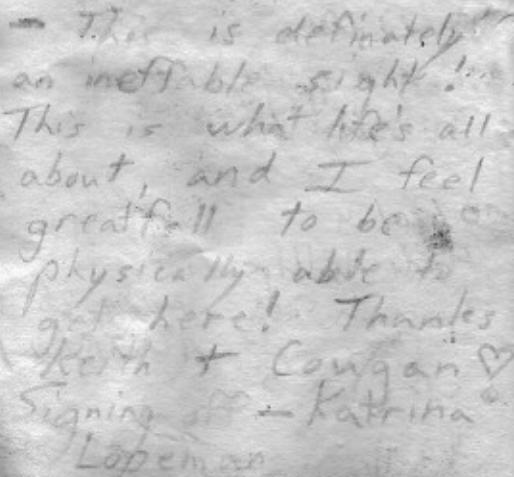 - This is definately
an ineffable sight!
This is what life's all
about, and I feel
greatfull to be
physically able to
get here! Thanks
Keith + Cougan ♡
Signing off - Katrina
Lopeman